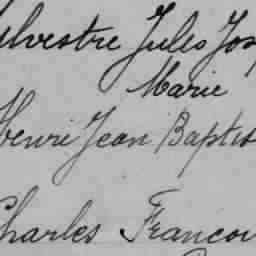 Sylvestre Jules Jos
Marie
Henri Jean Baptis
Charles Francoi